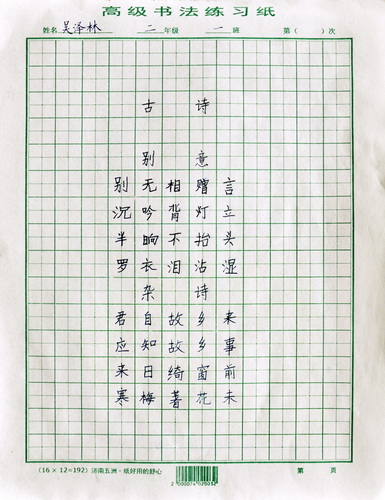 高级书法练习纸
姓名 吴泽林 二年级 一班 第( )次
古诗
别意
别无相赠言
沉吟背灯立
半晌不抬头
罗衣泪沾湿
杂诗
君自故乡来
应知故乡事
来日绮窗前
寒梅著花未
(16×12=192) 济南五洲·纸好用的舒心 第 页